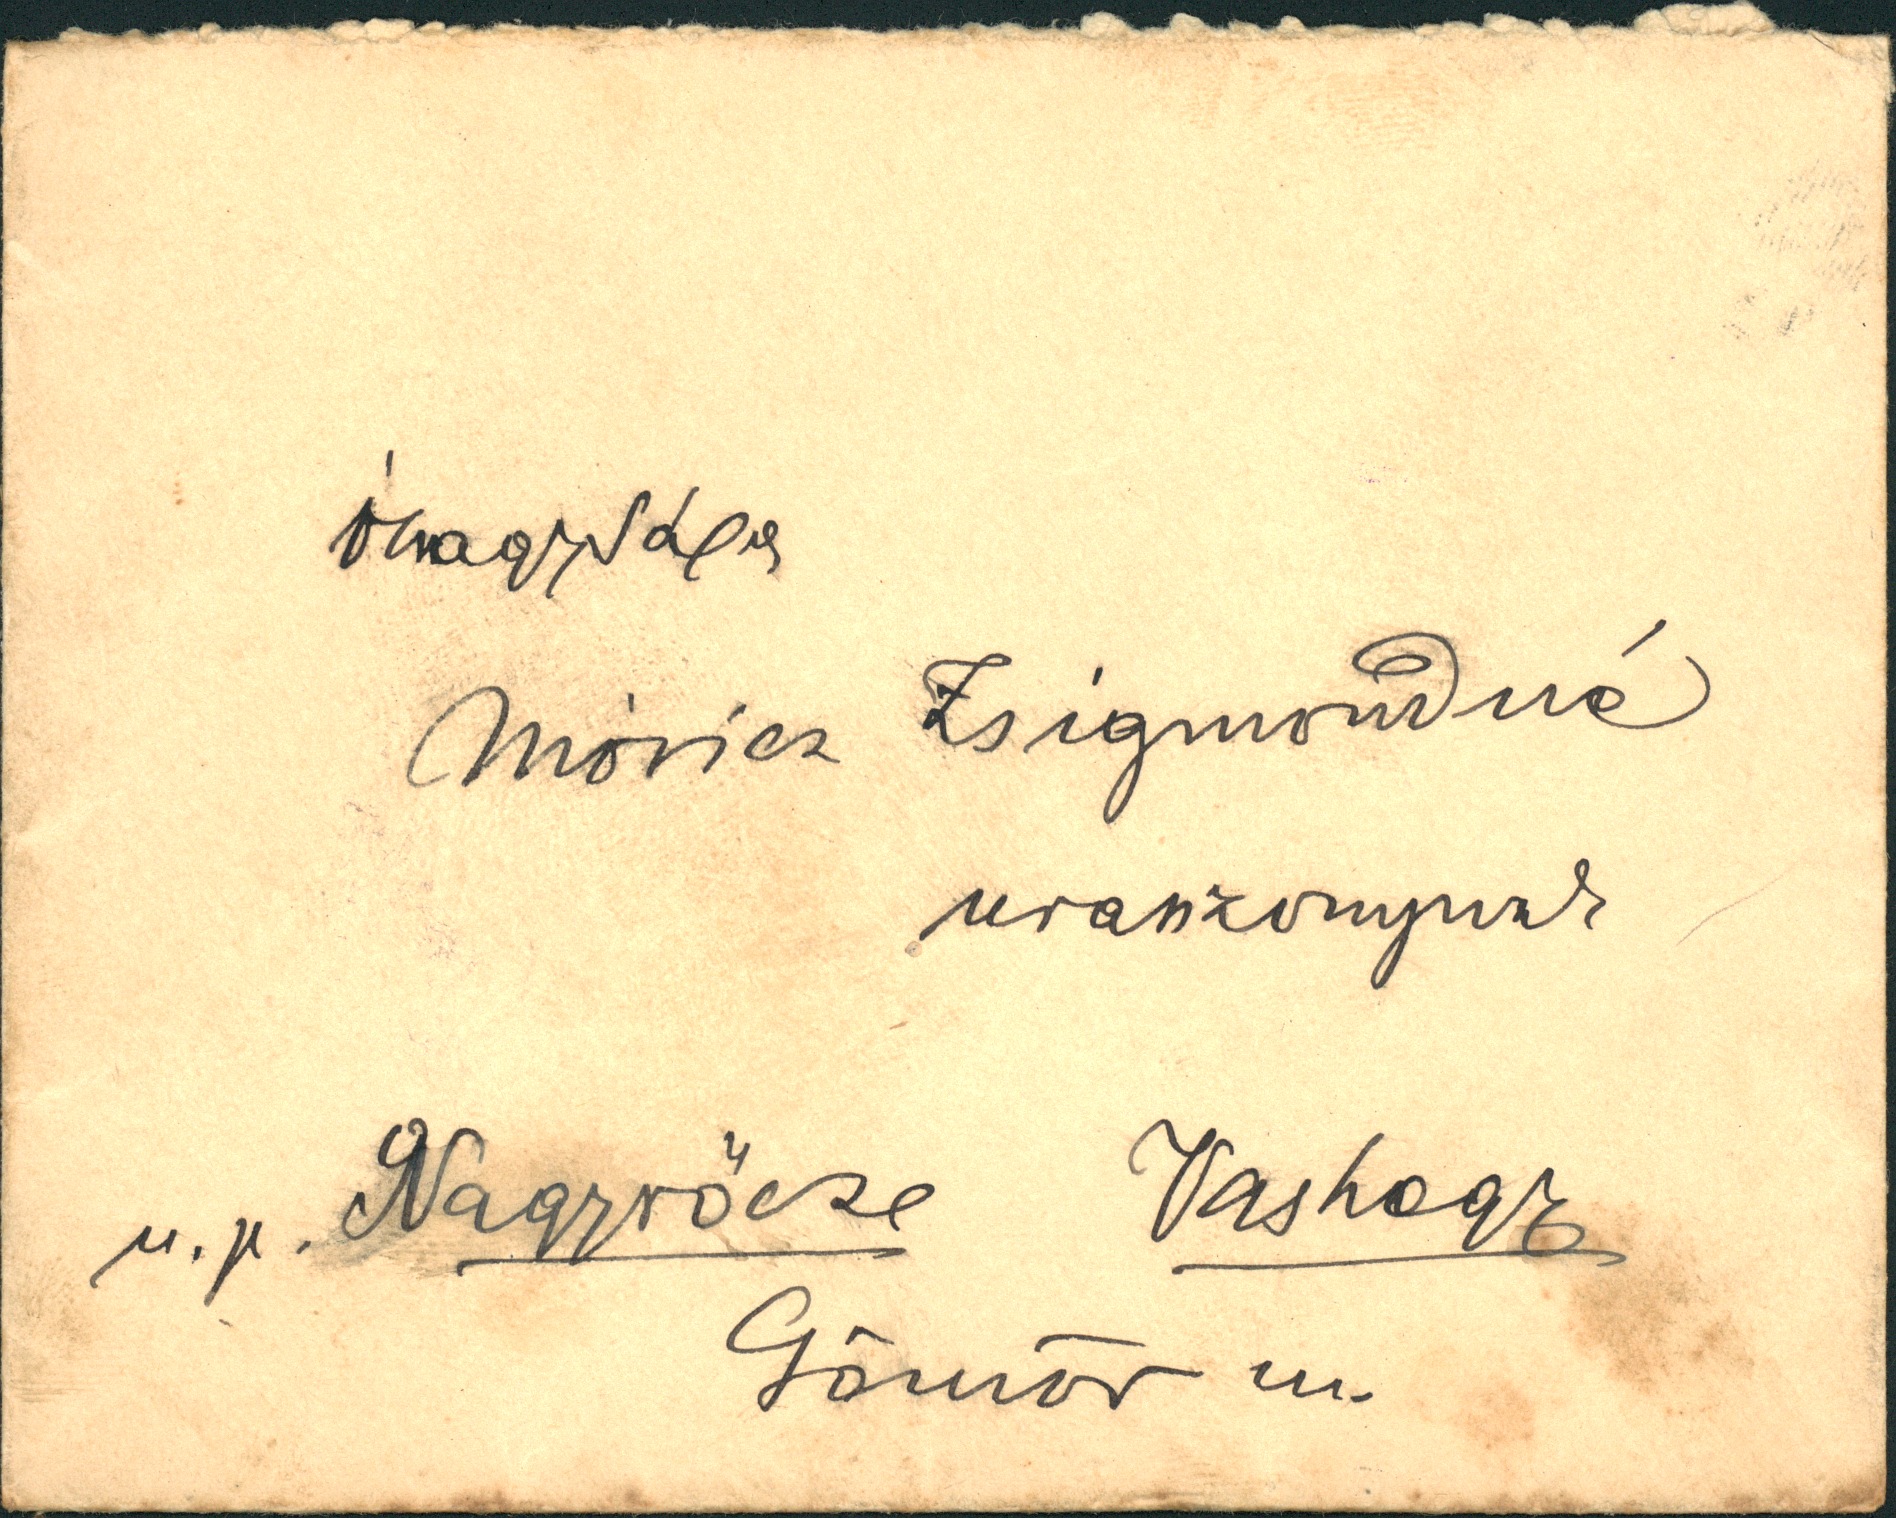 Őnagysága
Móricz Zsigmondné
urasszonynak
u. p. Nagyrőcze Vashegy
Gömör m.